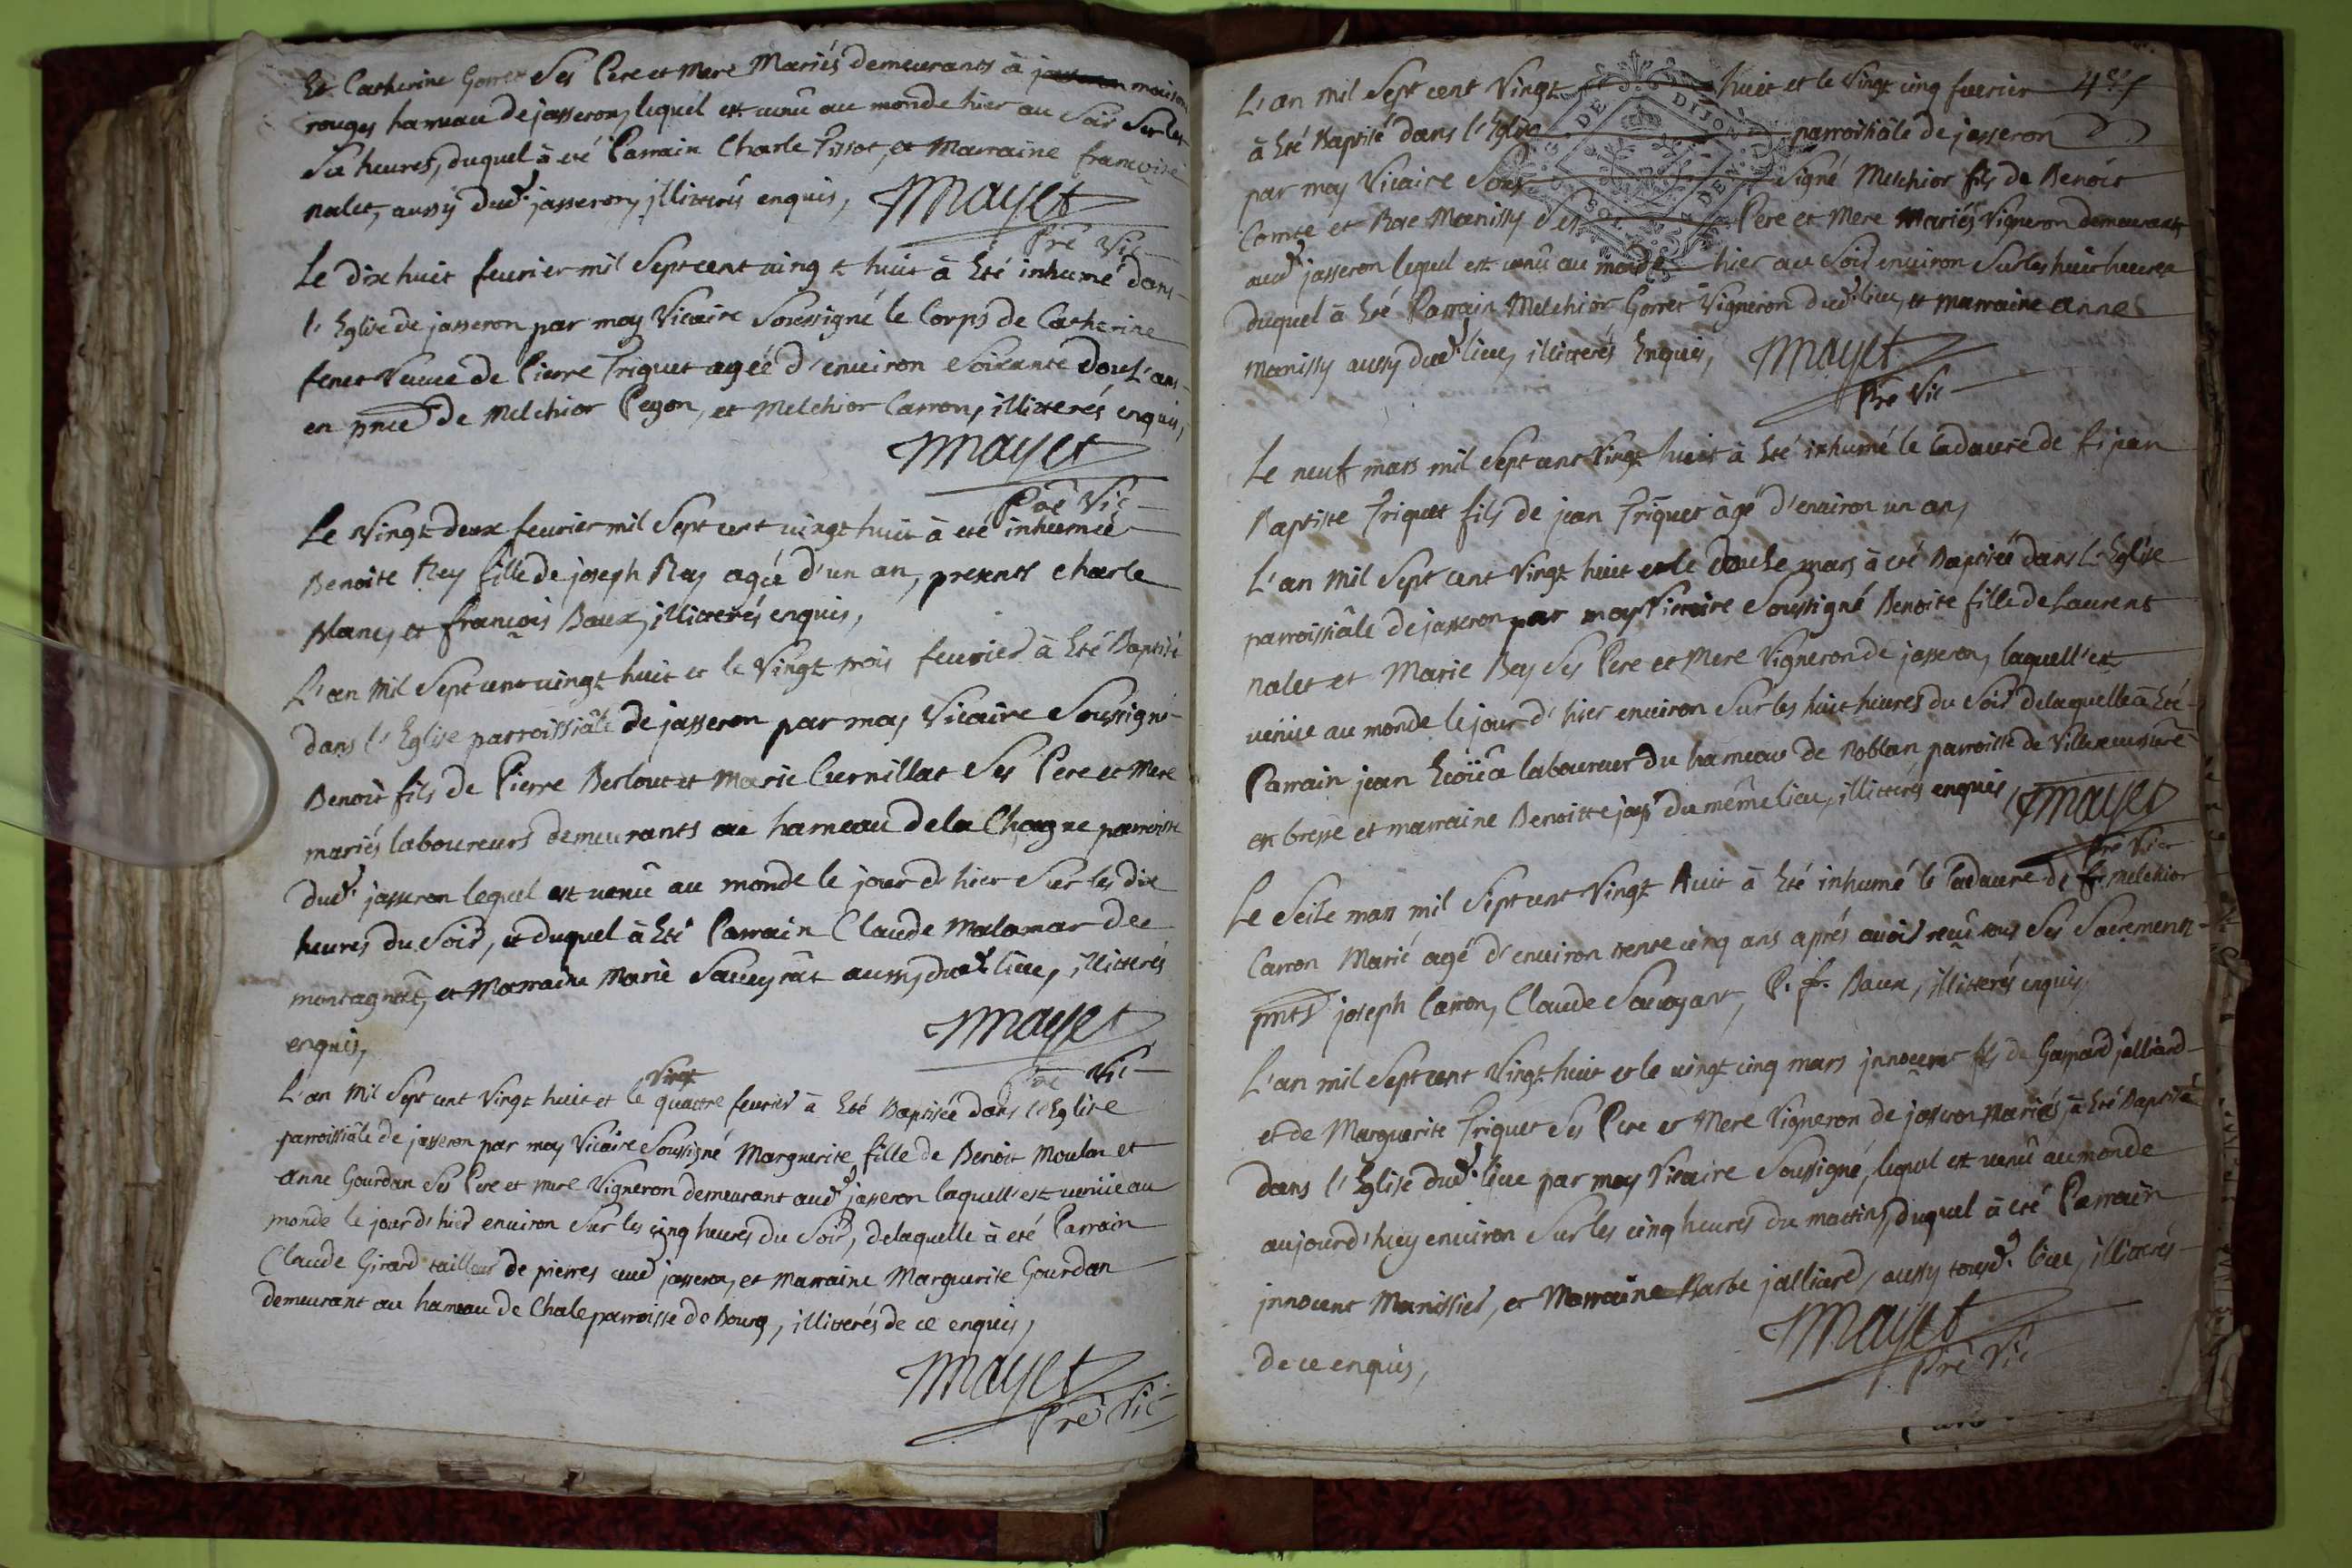 Et Catherine Gorret Ses Pere et Mere Mariés demeurants à maisons
rouges hameau de jasseron, lequel est venû au monde hier au Soir Sur les
Six heures, duquel à eté Parrain Charle Pissot, et Marraine francoise
nalet, aussy dud. jasseron, jllitterés enquis, Mayet
Pre Vic
Le dix huit feurier mil Sept cent uingt huit à Eté inhumé dans
l'Eglise de jasseron par moy Vicaire Soussigné le Corps de Catherine
feuet Veuue de Pierre Friquet agéé d'enuiron Soixante Douz'ans
en pnce de Melchior Peyon, et Melchior Carron, illitterés enquis,
Mayet
Pre Vic
Le Vingt deux feurier mil Sept cent uingt huit à eté inhumée
Benoite Rey fille de joseph Rey agéé d'un an, presents Charle
blanc, et francois Baux, jllitterés enquis,
L'an Mil Sept cent uingt huit et le Vingt trois feurier à Eté Baptisé
dans l'Eglise parroissiâle de jasseron par moy Vicaire Soussigné
Benoit fils de Pierre Berlout et Marie Curnillat Ses Pere et Mere
mariés laboureurs demeurants au hameau de la Chagne parroisse
dud. jasseron lequel est venû au monde le jour d'hier Sur les dix
heures du Soir, et duquel à Eté Parrain Claude Malamar de
montagnat, et Marraine Marie Saueyrat aussy dud. lieu, illitterés
enquis, Mayet
Pre Vic
Vingt
L'an Mil Sept cent Vingt huit et le quattre feurier à Eté Baptisée dans l'Eglise
parroissiâle de jasseron par moy Vicaire Soussigné Marguerite fille de Benoit Moulon et
Anne Gourdan Ses Pere et Mere Vigneron demeurant aud. jasseron laquell'est venüe au
monde le jour d'hier enuiron Sur les cinq heures du Soir, delaquelle à eté Parrain
Claude Girard tailleur de pierres aud jasseron, et Marraine Marguerite Gourdan
demeurant au hameau de Chale parroisse de Bourg, illitterés de ce enquis,
Mayet
Pre Vic
L'an Mil Sept cent Vingt huit et le Vingt cinq feurier
à Eté Baptisé dans l'Eglise parroissiâle de jasseron
par moy Vicaire Sous Signé Melchior fils de Benoit
Comte et Rose Manissy Ses Pere et Mere Mariés Vigneron demeurants
aud. jasseron lequel est uenû au monde hier au Soir enuiron Sur les huit heures
duquel à Eté Parrain Melchior Gorret Vigneron dud. lieu, et marraine anne
Manissy aussy dud. lieu, illitterés Enquis, Mayet
Pre Vic
DE DIJON
Le neuf mars mil Sept cent Vingt huit à Eté inhumé le Cadaure de fû jean
Baptiste Friquet fils de jean Friquet âgé d'enuiron un an,
L'an Mil Sept cent Vingt huit et le douze mars à eté Baptisée dans l'Eglise
parroissiâle de jasseron par moy Vicaire Soussigné Benoite fille de Laurent
nalet et Marie Bey Ses Pere et Mere Vigneron de jasseron, laquell'est
uenüe au monde le jour d'hier enuiron Sur les huit heures du Soir delaquelle à Eté
Parrain jean laboureur du hameau de Noblan, parroisse de Villereuersure
en bresse et marraine Benoitte du même lieu, illitterés enquis, Mayet
Pre Vic
Le Seize mars mil Sept cent Vingt huit à Eté inhumé le Cadaure de fû Melchior
Carron Marié agé d'enuiron trente cinq ans aprés auoir reçû tous Ses Sacrements
pnts joseph Carron, Claude Sauoyant, P. fr. Baux, illitterés enquis,
L'an mil Sept cent Vingt huit et le uingt cinq mars jnnocent fils de Gaspard jalliard
et de Marguerite Friquet Ses Pere et Mere Vigneron de jasseron Mariés, à Eté Baptisé
dans l'Eglise dud. lieu par moy Vicaire Soussigné, lequel est uenû au monde
aujourd'huy enuiron Sur les cinq heures du mattin, duquel à eté Parrain
jnnocent Manissier, et Marraine Barbe jalliard, aussy tousd. lieu, illitterés
de ce enquis, Mayet
Pre Vic